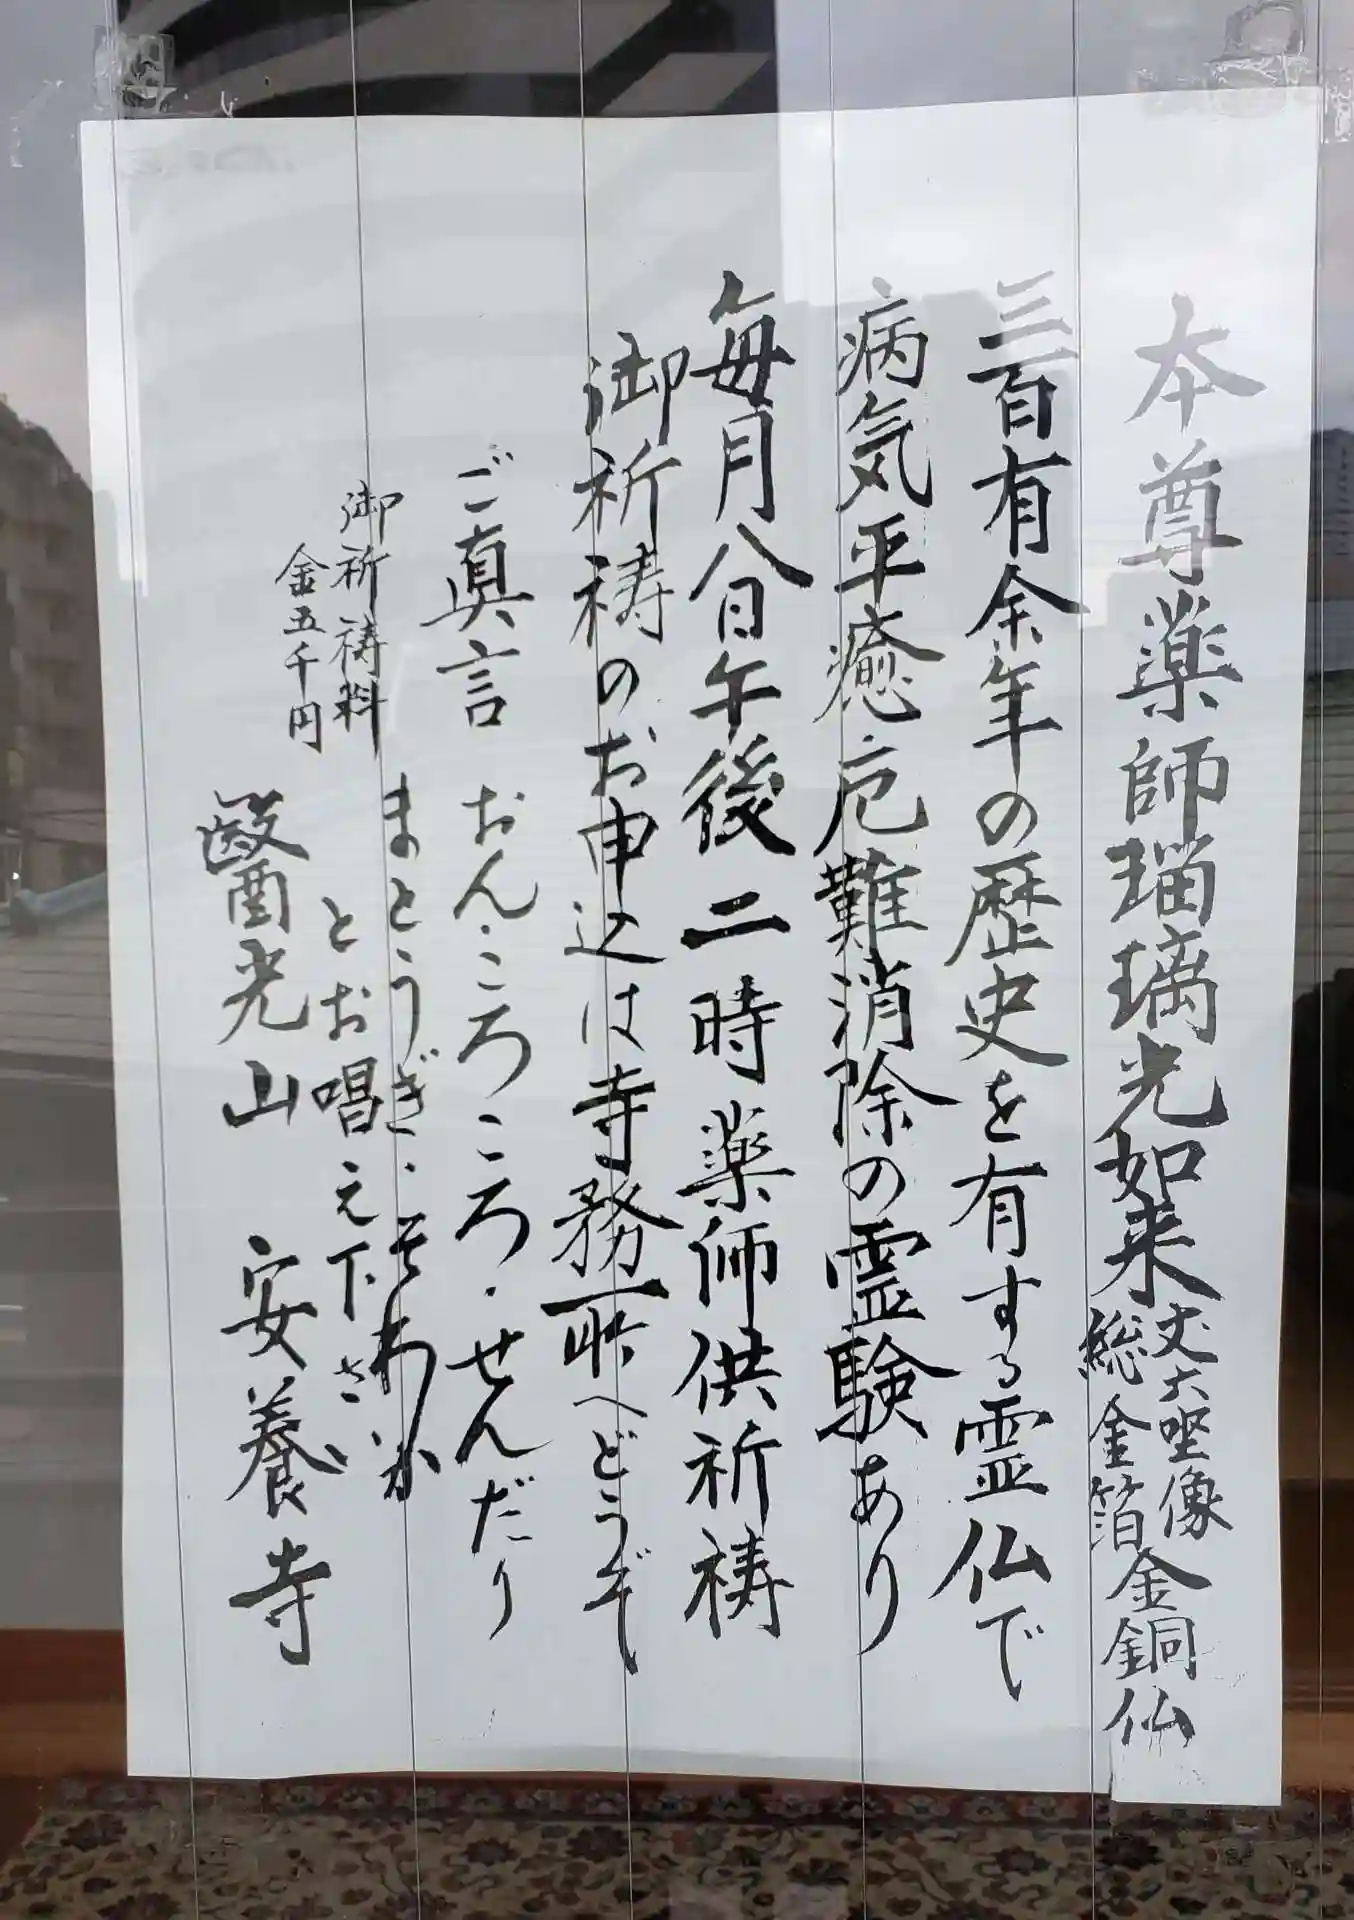 本尊薬師瑠璃光如来
丈六坐像
総金箔
金銅仏
三百有余年の歴史を有する霊仏で
病気平癒厄難消除の霊験あり
毎月八日午後二時薬師供祈祷
御祈祷のお申込は寺務所へどうぞ
ご真言 おん・ころころ・せんだり
まとうぎ・そわか
とお唱え下さい
御祈祷料
金五千円
醫光山 安養寺